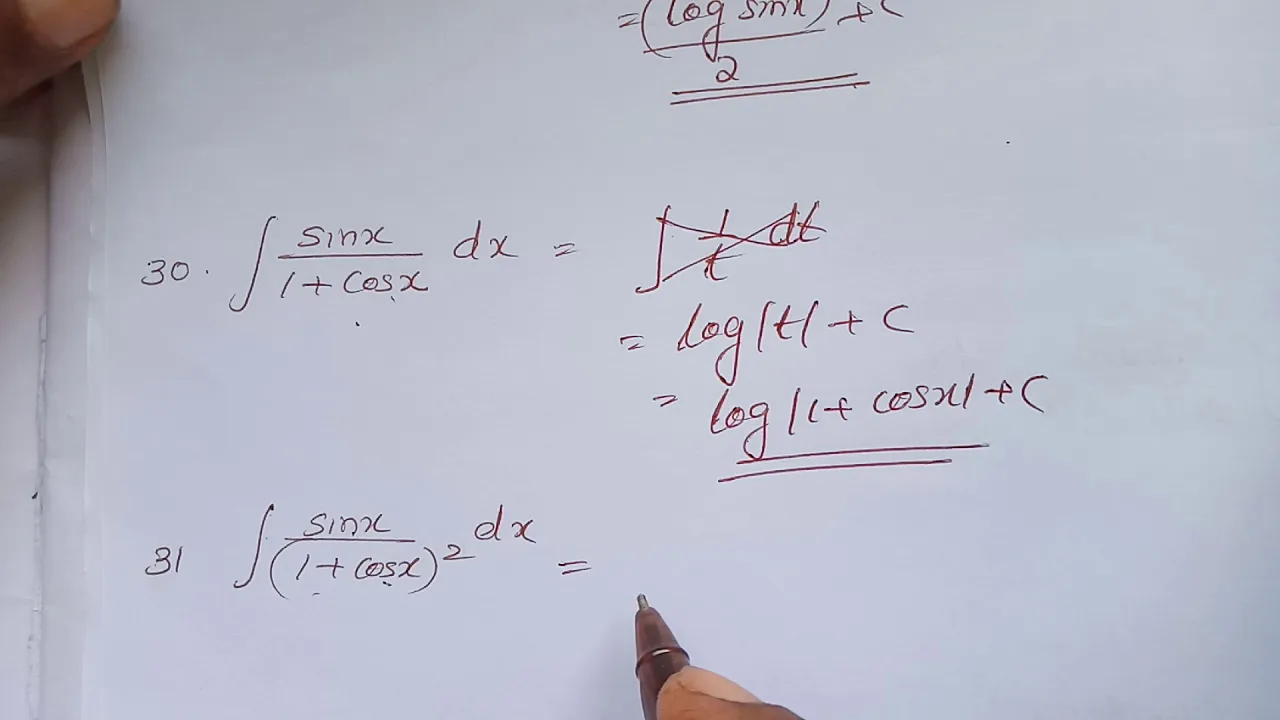 = (log sinx) + C
2
30. ∫ sinx / 1 + cosx dx = ∫ 1/t dt
= log|t| + C
= log|1+ cosx| + C
31 ∫ sinx / (1 + cosx)² dx =